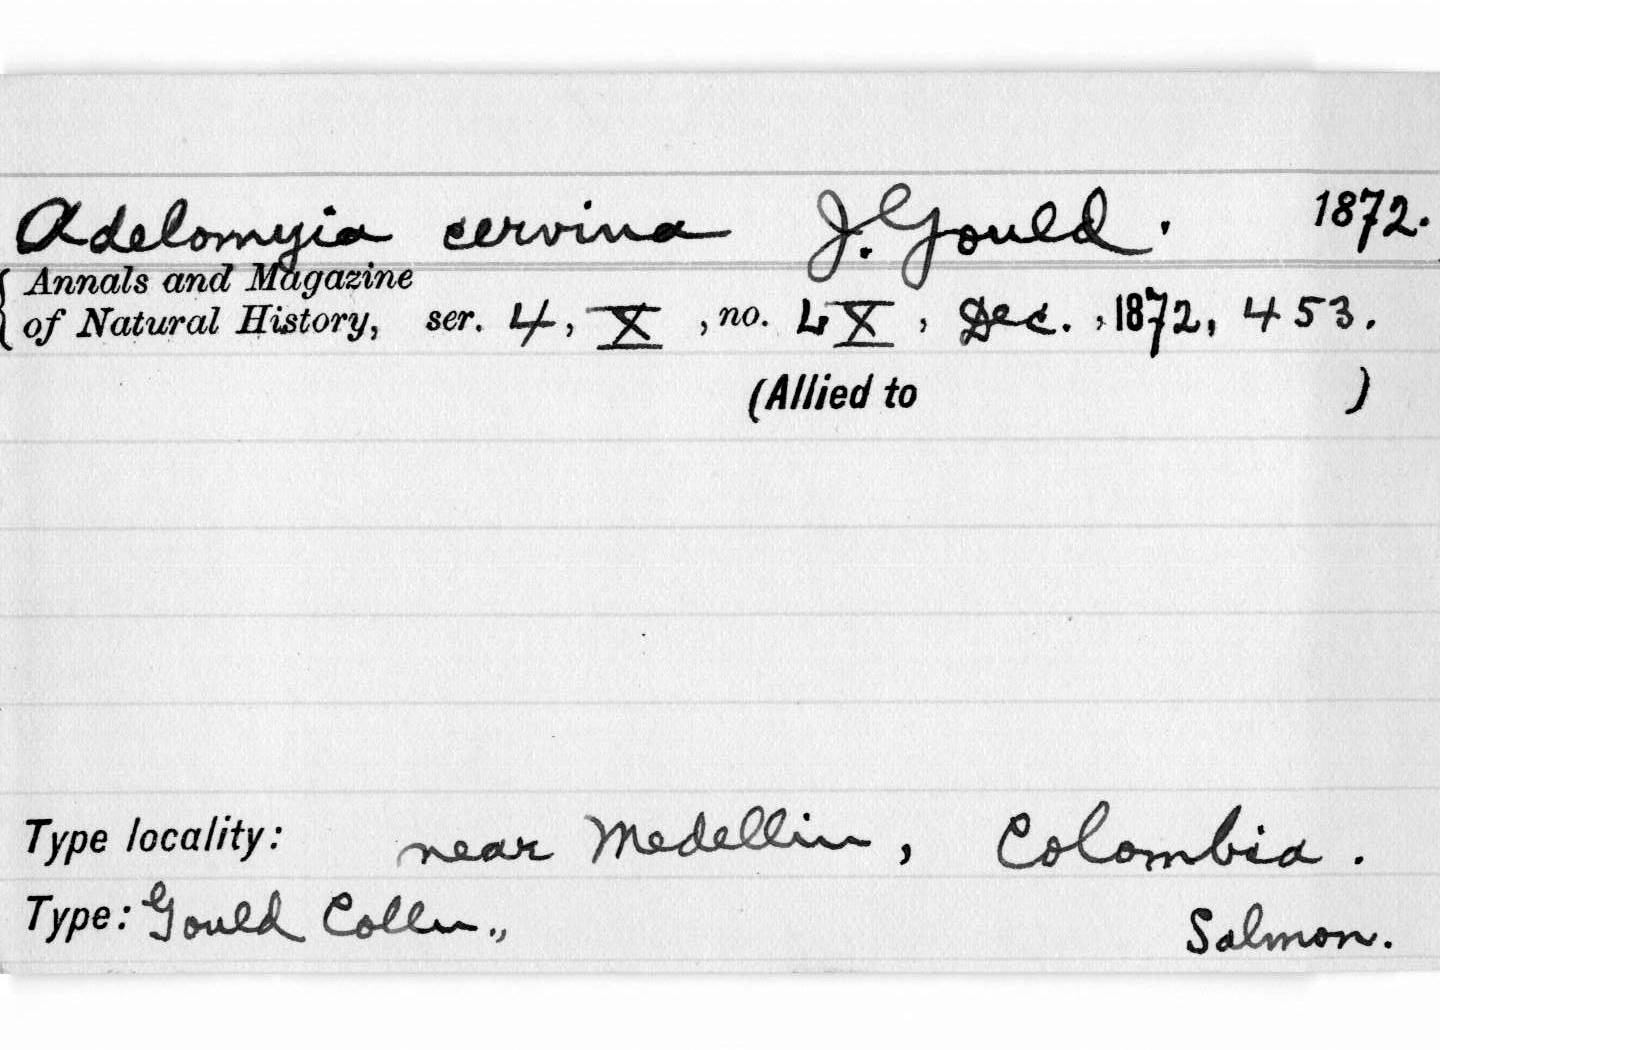 Adelomyia cervina J. Gould. 1872.
Annals and Magazine
of Natural History, ser. 4, X, no. LX, Dec., 1872, 453.
(Allied to )
Type locality: near Medellin, Colombia.
Type: Gould Colln., Salmon.